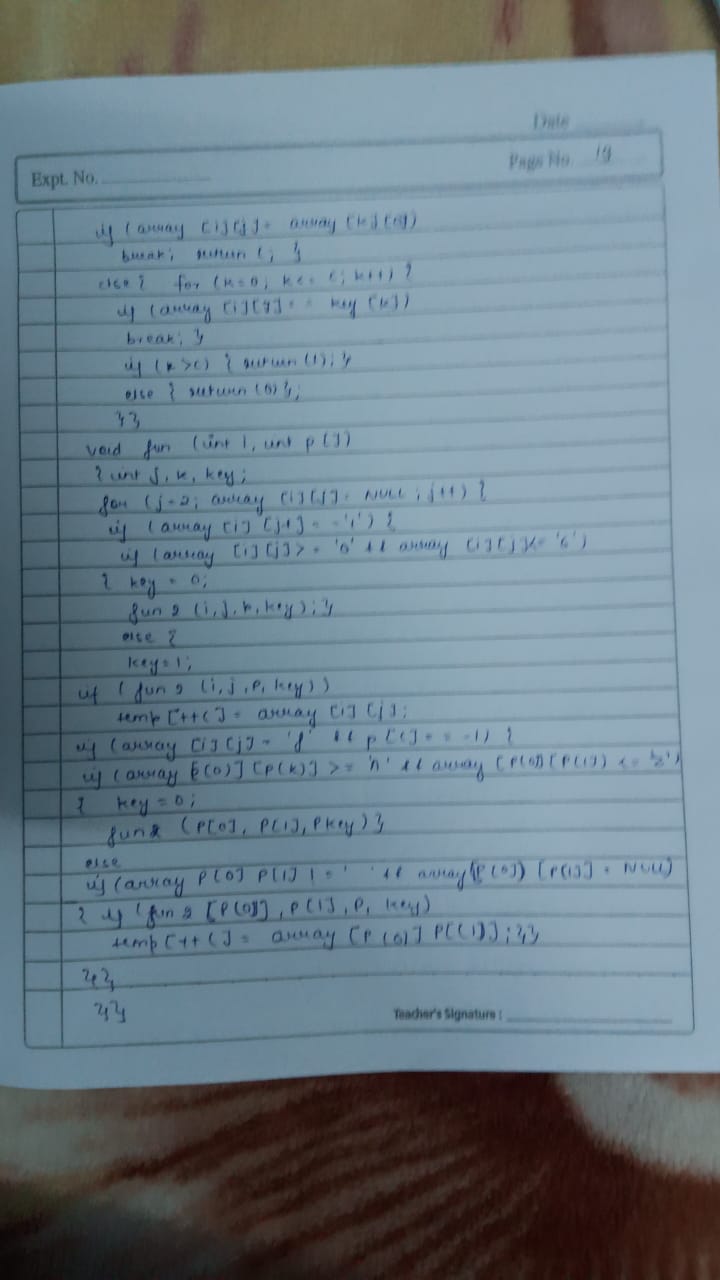 Date
Page No. 19
Expt. No.
if (array [i][j] = array [k][0])
break; return 1; }
else { for (k=0; k<= c; k++) {
if (array [i][j] == key [k])
break; }
if (k>c) { return (1); }
else { return (0) };
}}
void fun (int i, int p[])
{ int j, k, key;
for (j=2; array [i][j] = NULL; j++) {
if (array [i] [j+] = = '/') {
if (array [i][j] > = 'a' && array [i][j] <= 'z')
{ key = 0;
fun 2 (i, j, p, key); }
else {
key=1;
if (fun 2 (i, j, p, key))
temp [++c] = array [i] [j];
if (array [i][j] = 'f' && p [c] = = -1) {
if (array p(0)] [p(k)] >= 'a' && array [p(0)] [p(1)] <= 'z')
{ key = 0;
fun2 (p[0], p[1], p key) }
else
if (array p[0] p[1] != ' ' && array [p(0)] [p(1)] = NULL)
{ if (fun 2 [p(0)], p[1], p, key)
temp [++c] = array [p (0)] p[(1)]; }}
}}
}}
Teacher's Signature :